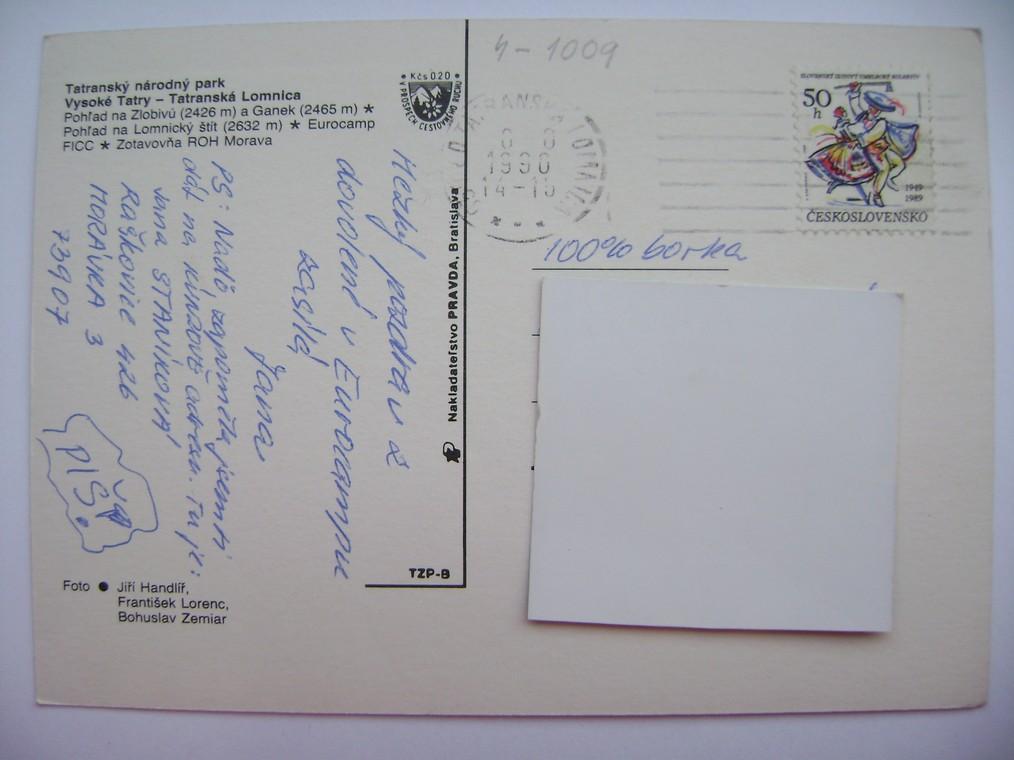 Tatranský národný park
Vysoké Tatry – Tatranská Lomnica
Pohľad na Zlobivú (2426 m) a Ganek (2465 m) ★
Pohľad na Lomnický štít (2632 m) ★ Eurocamp
FICC ★ Zotavovňa ROH Morava
Kčs 020
V PROSPECH CESTOVNÉHO RUCHU
Hezký pozdrav z
dovolené v Eurocampu
zasílá
Jana
PS: Naďo, zapoměla jsem ti
dáj na kinzově adresu. Tu je:
Jana STANÍKOVÁ
RAŠKOVICE 426
MORÁVKA 3
73907
PIŠ!
Foto ● Jiří Handlíř,
František Lorenc,
Bohuslav Zemiar
Nakladateľstvo PRAVDA, Bratislava
TZP-B
4-1009
8 8
1990
14-15
SLOVENSKÝ ĽUDOVÝ UMELECKÝ KOLEKTÍV
50
h
1949
1989
ČESKOSLOVENSKO
100% borka